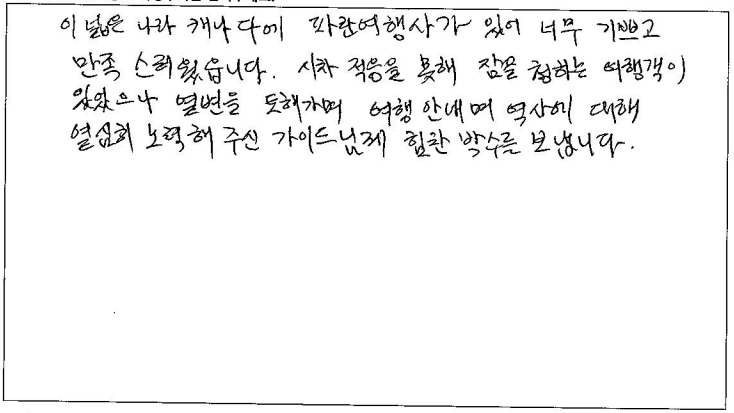 이 넓은 나라 캐나다에 파란여행사가 있어 너무 기쁘고
만족 스러웠읍니다. 시차 적응을 못해 잠을 청하는 여행객이
있었으나 열변을 토해가며 여행 안내며 역사에 대해
열심히 노력해 주신 가이드님께 힘찬 박수를 보냅니다.